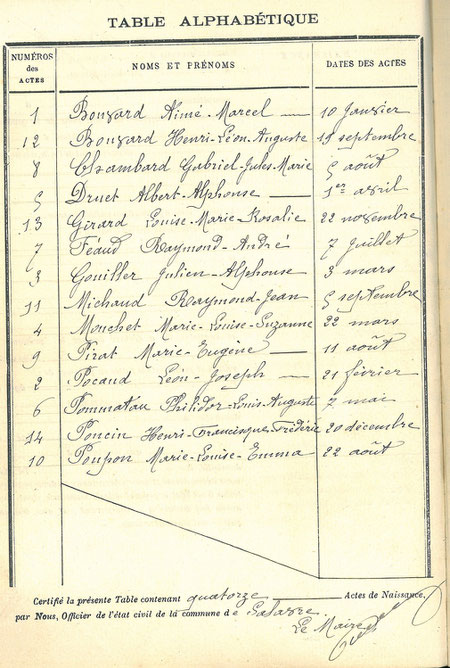 TABLE ALPHABÉTIQUE
NUMÉROS des ACTES NOMS ET PRÉNOMS DATES DES ACTES
1 Bouvard Aimé-Marcel — 10 Janvier
12 Bouvard Henri-Léon-Auguste 15 septembre
8 Chambard Gabriel-Jules-Marie 5 août
5 Druet Albert-Alphonse — 1er avril
13 Girard Louise-Marie-Rosalie 22 novembre
7 Féaud Raymond-André 7 Juillet
3 Gouiller Julien-Alphonse 3 mars
11 Michaud Raymond-Jean 5 septembre
4 Mouchet Marie-Louise-Suzanne 22 mars
9 Pirat Marie-Eugène — 11 août
2 Pocaud Léon-Joseph — 21 février
6 Pommatau Philidor-Louis-Auguste 7 mai
14 Poncin Henri-Francisque-Frédéric 20 décembre
10 Poupon Marie-Louise-Emma 22 août
Certifié la présente Table contenant quatorze Actes de Naissance,
par Nous, Officier de l'état civil de la commune de
Le Maire